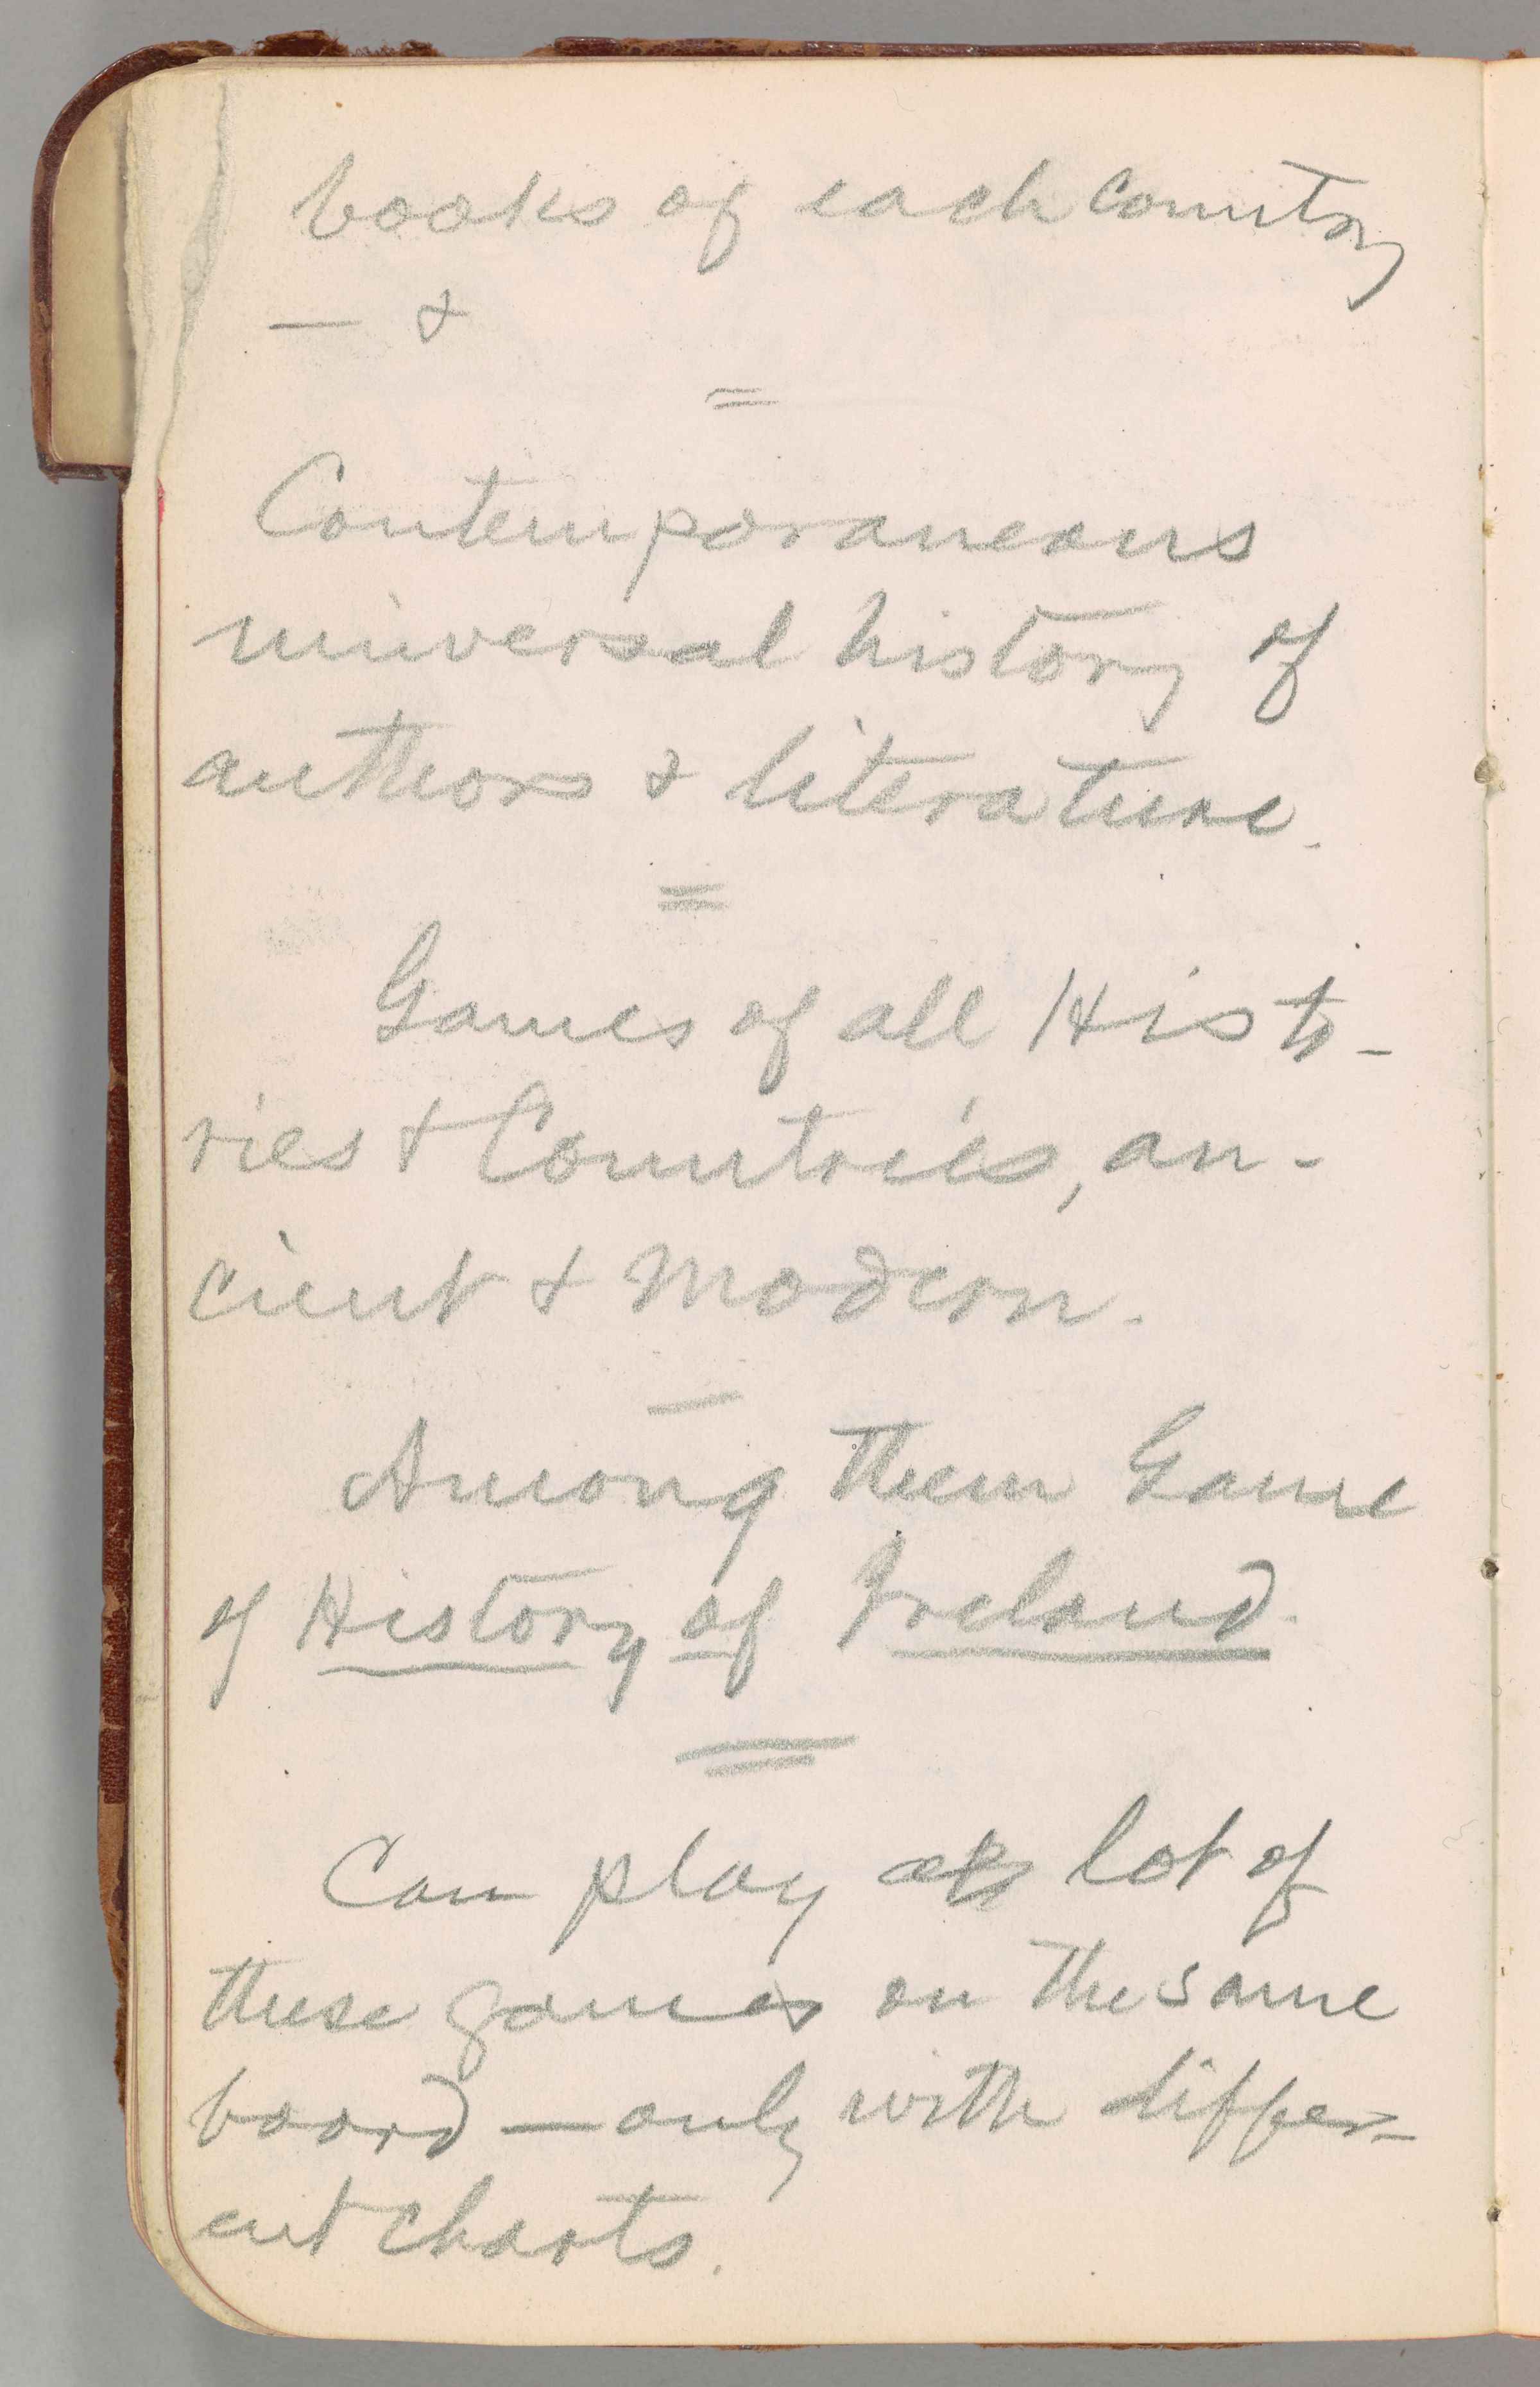 books of each country
— &
=
Contemporaneous
universal history of
authors & literature.
=
Games of all Histo-
ries & Countries, an-
cient & Modern.
—
Among them Game
of History of Ireland.
=
Can play a lot of
these games on the same
board — only with differ-
ent charts.